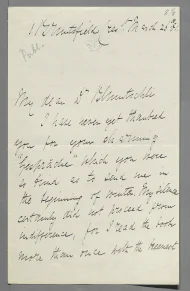 My dear Dr Bluntschli
I have never yet thanked
you for your charming
"Gespräche" which you were
so kind as to send me in
the beginning of winter. My silence
certainly did not proceed from
indifference, for I read the book
more than once with the